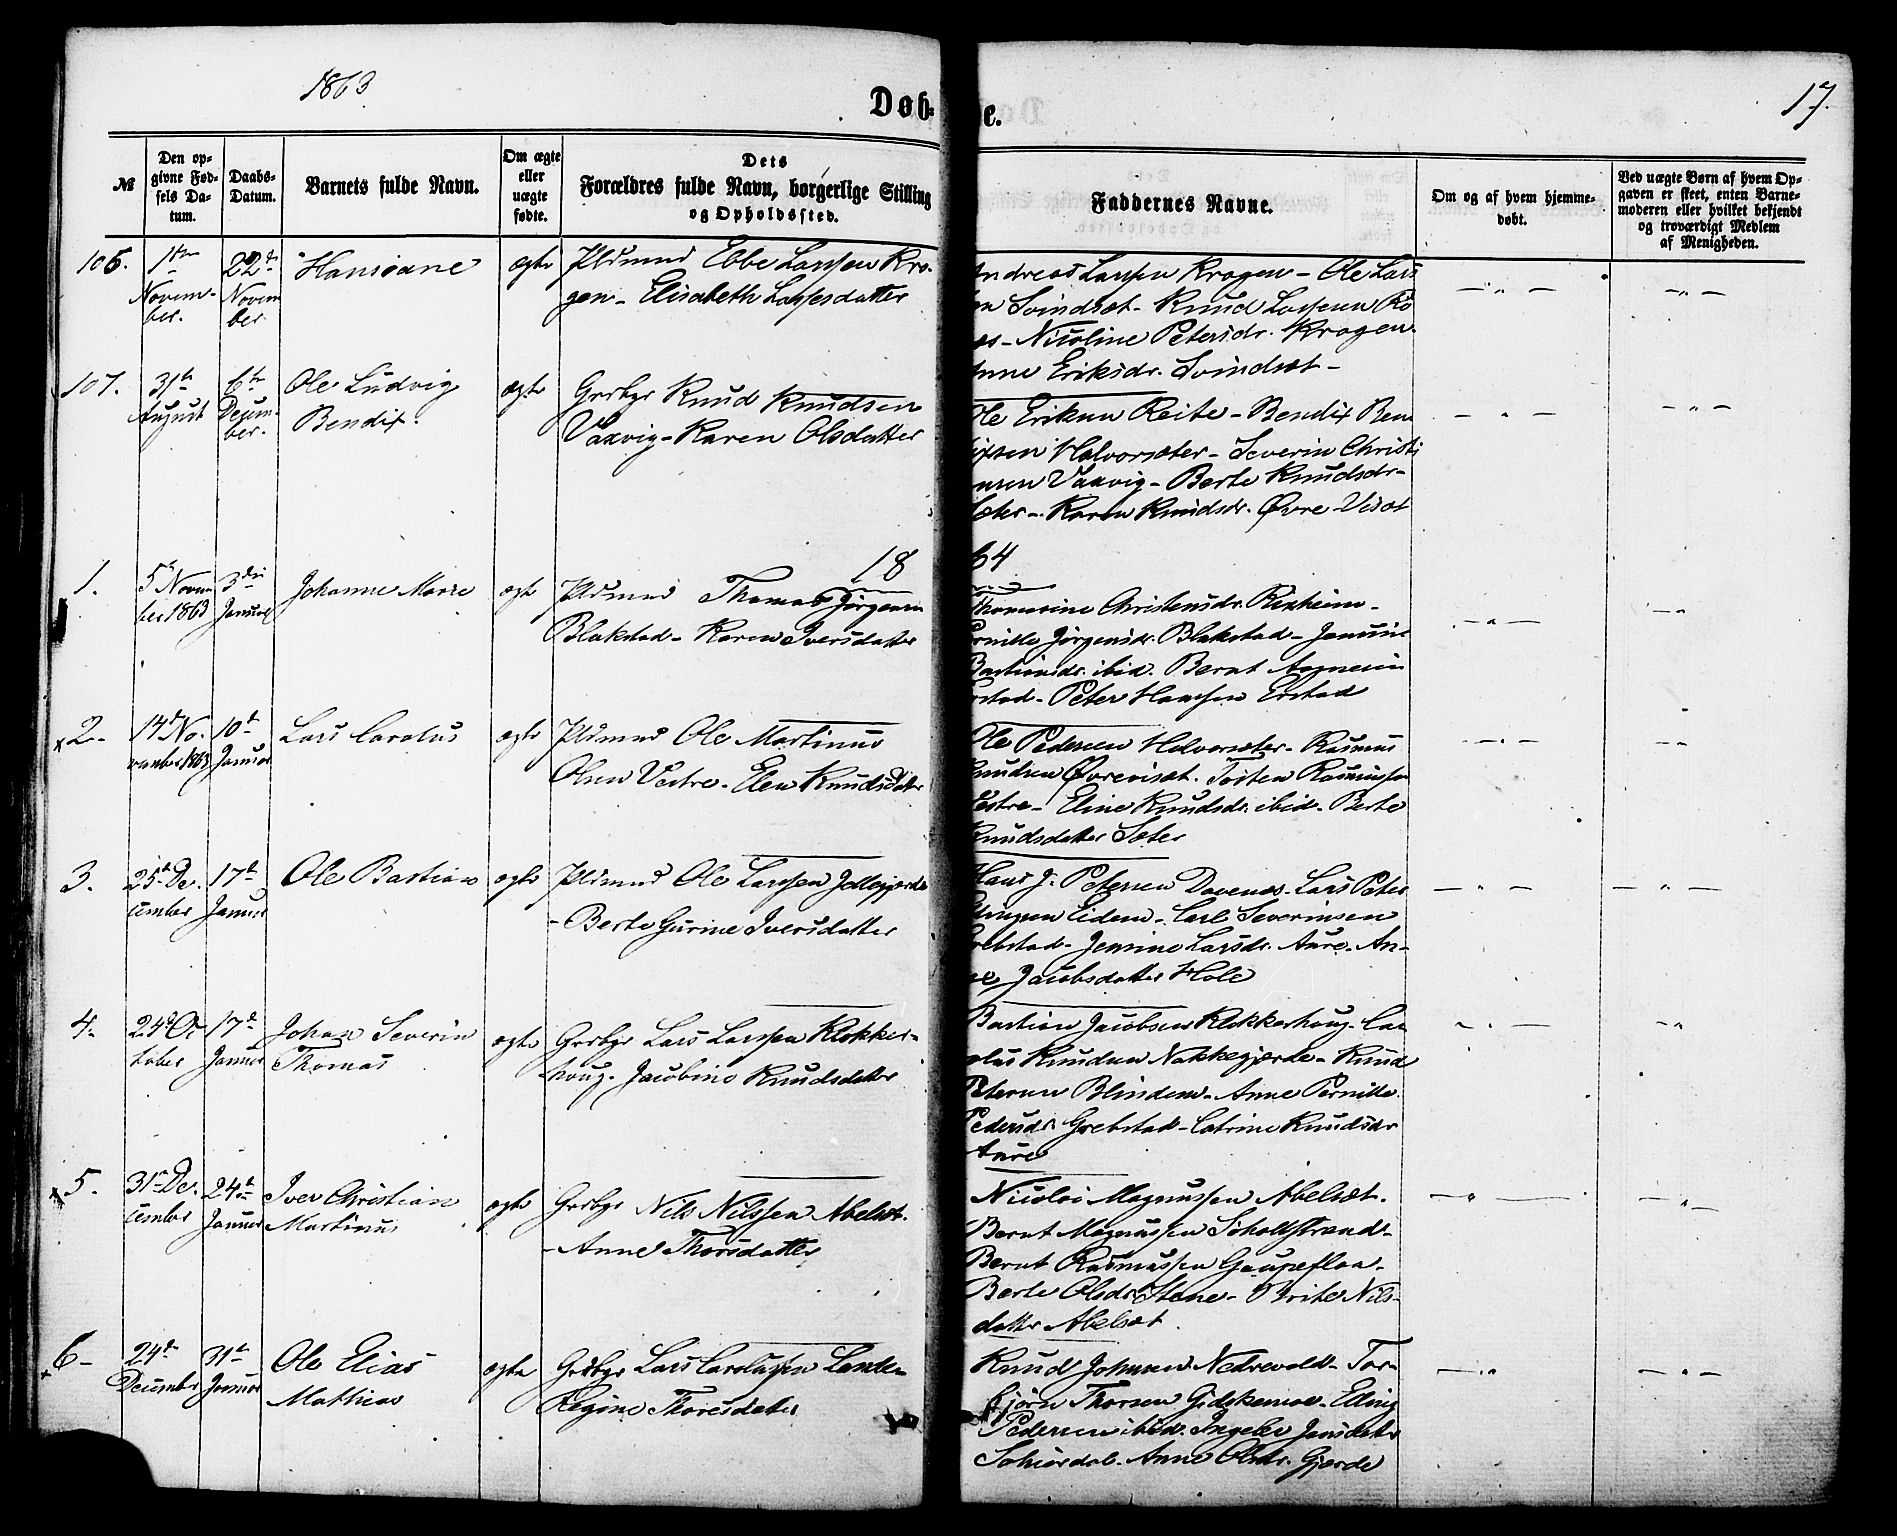 1863
Døb-
e.
17.
№
Den op-
givne Fød-
sels Da-
tum.
Daabs-
Datum.
Barnets fulde Navn.
Om ægte
eller
uægte
fødte.
Dets
Forældres fulde Navn, borgerlige Stilling
og Opholdssted.
Faddernes Navne.
Om og af hvem hjemme-
døbt.
Ved uægte Børn af hvem Op-
gaven er skeet, enten Barne-
moderen eller hvilket bekjendt
og troværdigt Medlem
af Menigheden.
106.
1ste
Novem-
ber.
22de
Novem
ber
Hansoane
ægte
Pldmnd Ebbe Larssen Kro-
gen - Elisabeth Lassesdatter
Andreas Larssen Krogen - Ole Lars
en Svindset - Knud Lassesen Rö
es - Nicoline Petersdr. Krogen
Anne Eriksdr. Svindset -
107.
31te
August
6te
Decem-
ber.
Ole Ludvig
Bendix.
ægte
Grdbgr Knud Knudsen
Vaxvig - Karen Olsdatter
Ole Eriksen Reite - Bendix Ben
dixsen Halvorsæter - Severin Christi
ansen Vaxvig - Berte Knudsdr-
Sæter - Karen Knudsdr. Øvre Viset
18
64
1.
5te Novem
ber 1863
3die
Januar
Johanne Marie
ægte
Pldmnd Thomas Jørgensen
Blakstad - Karen Iversdatter
Thomasine Christensdr. Rexheim -
Pernille Jørgensdr. Blakstad - Jensine
Bastiansdr. ibid. Bernt
Erstad - Peter Hanssen Erstad
2.
14de No.
vember 1863
10de
Januar
Lars Carolus
ægte
Pldmnd Ole Martinus
Olsen Vestre - Elen Knudsdatter
Ole Pedersen Halvorsæter - Rasmus
Knudsen Øvreviset. Tosten Rasmussen
Vestre - Eline Knudsdr. ibid - Berte
Knudsdatter Sæter
3.
25de De.
cember
17de
Januar
Ole Bastian
ægte
Pldmnd Ole Larssen
- Berte Gurine Iversdatter
Hans J. Petersen Davenes - Lars Peter
Elingsen Eidem - Carl Severinsen
Grebstad - Jensine Larsdr. Aure - An-
ne Jacobsdatter Hole
4.
24de Oc
tober
17de
Januar
Johan Severin
Thomas
ægte
Grdbgr Lars Larssen Klokker-
houg - Jacobine Knudsdatter
Bastian Jacobsen Klokkerhoug - Ca
rolus Knudsen Nakkegjerde - Knud
Petersen Blindem - Anne Pernille
Pedersdr. Grebstad - Catrine Knudsdr
Aure
5.
31te De.
cember
24de
Januar
Iver Christian
Martinus
ægte
Grdbgr Nils Nilssen Abelset.
- Anne Thorsdatter
Nicolai Magnussen Abelset.
Bernt Magnussen Soholtstrand-
Bernt Rasmussen Gaupefloa -
Berte Olsdr. Stene - Brite Nils-
datter Abelset.
6.
24de
December
31te
Januar
Ole Elias
Mathias
ægte
Grdbgr Lars Carolussen Lande-
Regine Thoresdatter
Knud Johnsen Nedrevold - Tor-
bjørn Thorsen Gidskemoe - Eling
Pedersen ibid. Ingeber Jansdatter
Solnørdal - Anne Olsdr. Gjerde